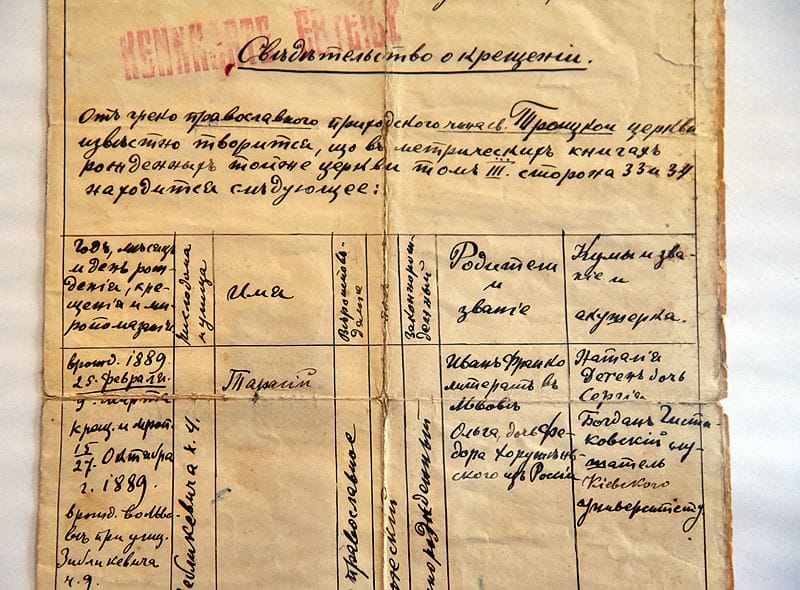 Свѣдѣтельство о крещеніи.
Отъ греко православного приходского чина св. Троицкои церкви
извѣстно творится, що въ метрическихъ книгахъ
рожденныхъ тойже церкви томъ III. сторона 33 и 34
находится слѣдующее:
Годъ, мѣсяць
и день рож-
денія, кре-
щенія и ми-
ропомазанія
число дома
и улица
Имя
Вѣроисповѣ-
даніе
полъ
законнорож-
денный
Родители
и
званіе
Кумы и зва-
ніе и
акушерка.
врожд. 1889.
25. февраля.
9. марта
крещ. и мvроп.
15
27. Октября
г. 1889.
врожд. во Льво-
вѣ при улиц.
Зибликевича
ч. 9.
Зибликевича ч. 9.
Тарасій
православное
мужескій
законорожденный
Иванъ Франко
литератъ въ
Львовѣ
Ольга, дочь Фе-
дора Хоружин-
ского изъ Росіи
Наталія
дочь
Сергія
Богданъ Кистя-
ковскій слу-
шатель
Кіевского
университету